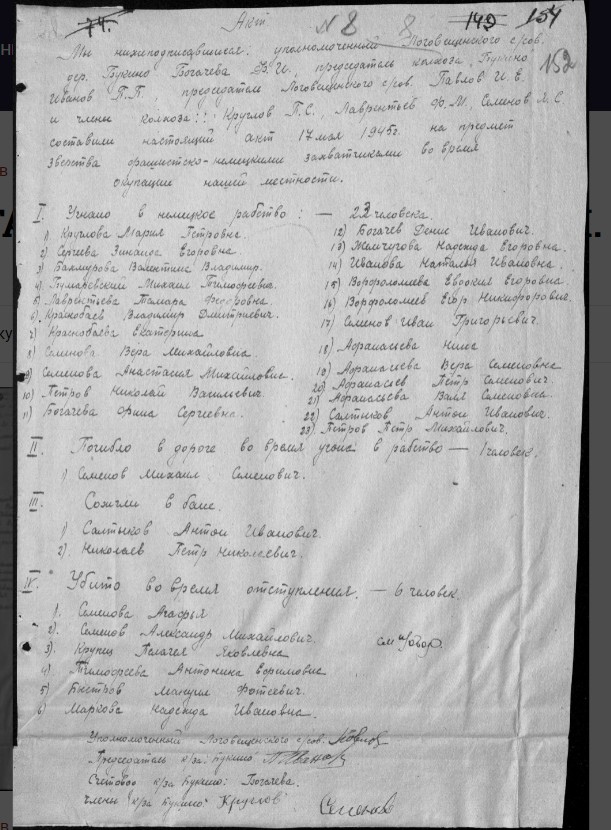 74. Акт N 8 8 149 154
Мы нижеподписавшиеся: уполномоченный Логовещенского с/сов.
дер. Букино Богачева В.И., председатель колхоза "Букино" 152
Иванов П.П., председатель Логовещенского с/сов. Павлов И.Е.
и члены колхоза:: Круглов П.С., Лаврентьев Ф.М, Семенов А.С
составили настоящий акт 17 мая 1945г. на предмет
зверства фашистско-немецкими захватчиками во время
окупации нашей местности.
I. Угнано в немецкое рабство: — 23 человека.
1) Круглова Мария Петровна.
2) Сергеева Зинаида Егоровна.
3) Бахмурова Валентина Владимир.
4) Михаил Тимофеевич.
5) Лаврентьева Тамара Федоровна.
6) Краснобаев Владимир Дмитриевич.
7) Краснобаева Екатерина
8) Семенова Вера Михайловна.
9) Семенова Анастасия Михайловна.
10) Петров Николай Васильевич.
11) Богачева Орина Сергеевна.
12) Богачев Денис Иванович.
13) Жемчугова Надежда Егоровна.
14) Иванова Наталья Ивановна.
15) Ворфоломеева Евдокия Егоровна.
16) Ворфоломеев Егор Никифорович.
17) Семенов Иван Григорьевич.
18) Афанасьева Нина
19) Афанасьева Вера Семеновна
20) Афанасьев Петр Семенович.
21) Афанасьева Валя Семеновна.
22) Салтыков Антон Иванович.
23) Петров Петр Михайлович.
II. Погибло в дороге во время угона в рабство — 1 человек.
1) Семенов Михаил Семенович.
III. Сожгли в бане.
1) Салтыков Антон Иванович.
2) Николаев Петр Николаевич.
IV. Убито во время отступления. — 6 человек.
1. Семенова Агафья
2). Семенов Александр Михайлович.
3). Крупец Пелагея Яковлевна
см
4) Тимофеева Антонина Ефимовна
5) Быстров Мануил Фотеевич.
6) Маркова Надежда Ивановна.
Уполномоченный Логовещенского с/сов:
Председатель к/за: Букино
Счетовод к/за Букино: Богачева.
члены к/за Букино" Круглов
Семенов